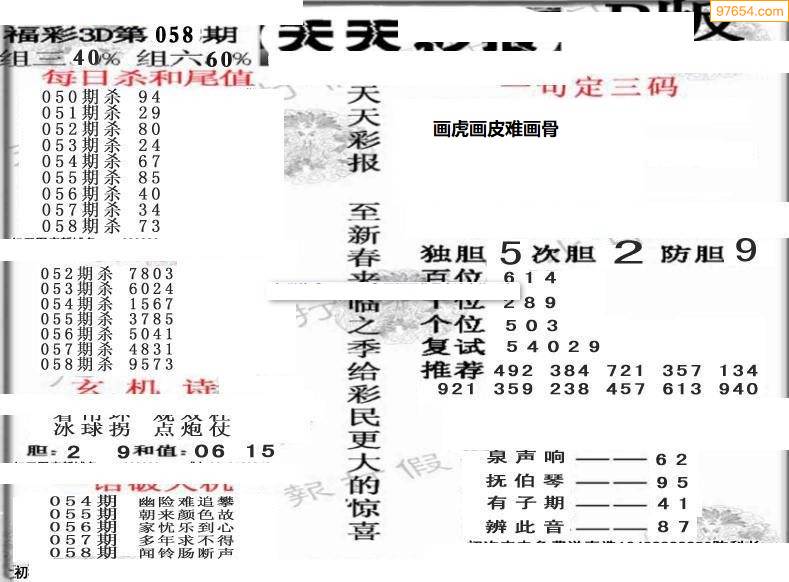 97654.com
福彩3D第058期
【天天彩报】
B版
组三40% 组六60%
每日杀和尾值
050期杀 94
051期杀 29
052期杀 80
053期杀 24
054期杀 67
055期杀 85
056期杀 40
057期杀 34
058期杀 73
052期杀 7803
053期杀 6024
054期杀 1567
055期杀 3785
056期杀 5041
057期杀 4831
058期杀 9573
玄机诗
冰球拐 点炮仗
胆:2 9和值:06 15
054期 幽险难追攀
055期 朝来颜色故
056期 家忧乐到心
057期 多年求不得
058期 闻铃肠断声
初
天天彩报 至新春来临之季给彩民更大的惊喜
一句定三码
画虎画皮难画骨
独胆5次胆2防胆9
百位 614
十位 289
个位 503
复试 54029
推荐 492 384 721 357 134
921 359 238 457 613 940
泉声响——— 62
抚伯琴——— 95
有子期——— 41
辨此音——— 87